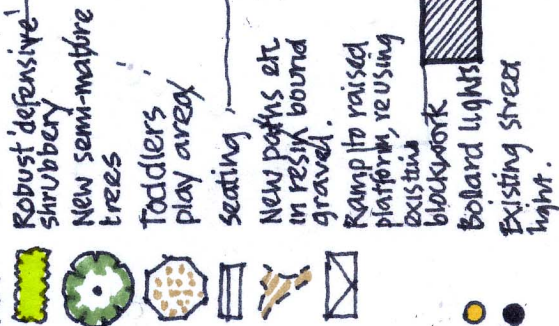 Robust 'defensive'
shrubbery
New semi-mature
trees
Toddlers
play area
Seating
New paths etc
in resin bound
gravel.
Ramp to raised
platform, reusing
existing
blockwork
Bollard lights
Existing street
light.